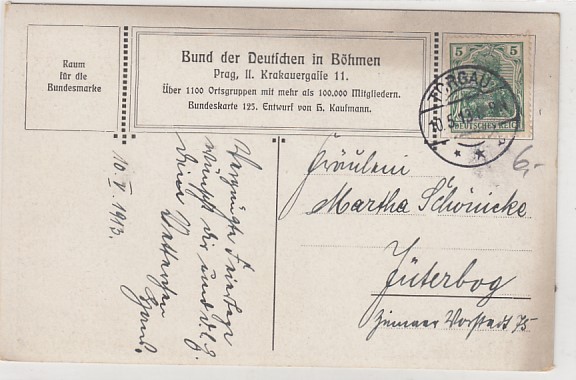 Raum
für die
Bundesmarke
Bund der Deutſchen in Böhmen
Prag, II. Krakauergaſſe 11.
Über 1100 Ortsgruppen mit mehr als 100.000 Mitgliedern.
Bundeskarte 125. Entwurf von H. Kaufmann.
5 5
DEUTSCHES REICH
TORGAU
10.5.13
* *
6,-
Vergnügte Feiertage
wünscht dir und
deine
10.V.1913.
Fräulein
Martha Schönicke
Jüterbog
Zinnaer Vorstadt 75